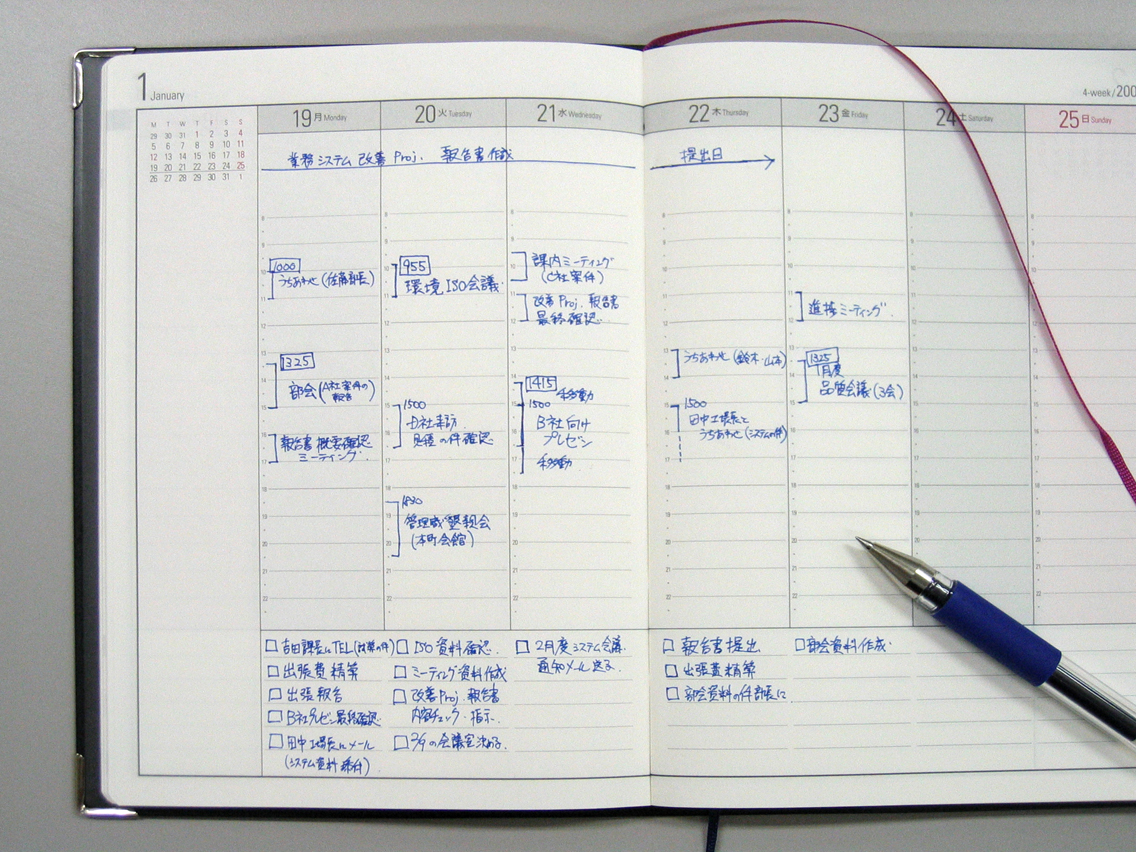 1 January
4-week/200
M T W T F S S
29 30 31 1 2 3 4
5 6 7 8 9 10 11
12 13 14 15 16 17 18
19 20 21 22 23 24 25
26 27 28 29 30 31 1
19 月 Monday
20 火 Tuesday
21 水 Wednesday
22 木 Thursday
23 金 Friday
24 土 Saturday
25 日 Sunday
業務システム改善 Proj. 報告書作成
提出日
1000
うちあわせ(佐藤部長)
1325
部会(A社案件の
報告)
報告書 概要確認
ミーティング.
955
環境ISO会議.
1500
D社来訪.
見積の件確認
1830
管理職懇親会
(本町会館)
課内ミーティング
(C社案件)
改善Proj. 報告書
最終確認.
1415
移動
1500
B社向け
プレゼン
移動
うちあわせ(鈴木・山本)
1500
田中工場長と
うちあわせ(システムの件)
進捗ミーティング.
1325
1月度
品質会議(3会)
□ 吉田課長にTEL(の件)
□ 出張費精算
□ 出張報告
□ B社プレゼン最終確認.
□ 田中工場長にメール
(システム資料添付)
□ ISO資料確認.
□ ミーティング資料作成
□ 改善Proj. 報告書
内容チェック・指示.
□ 2/9の会議室決める.
□ 2月度システム会議.
通知メール送る.
□ 報告書提出
□ 出張費精算
□ 部会資料の件部長に
□ 部会資料作成.